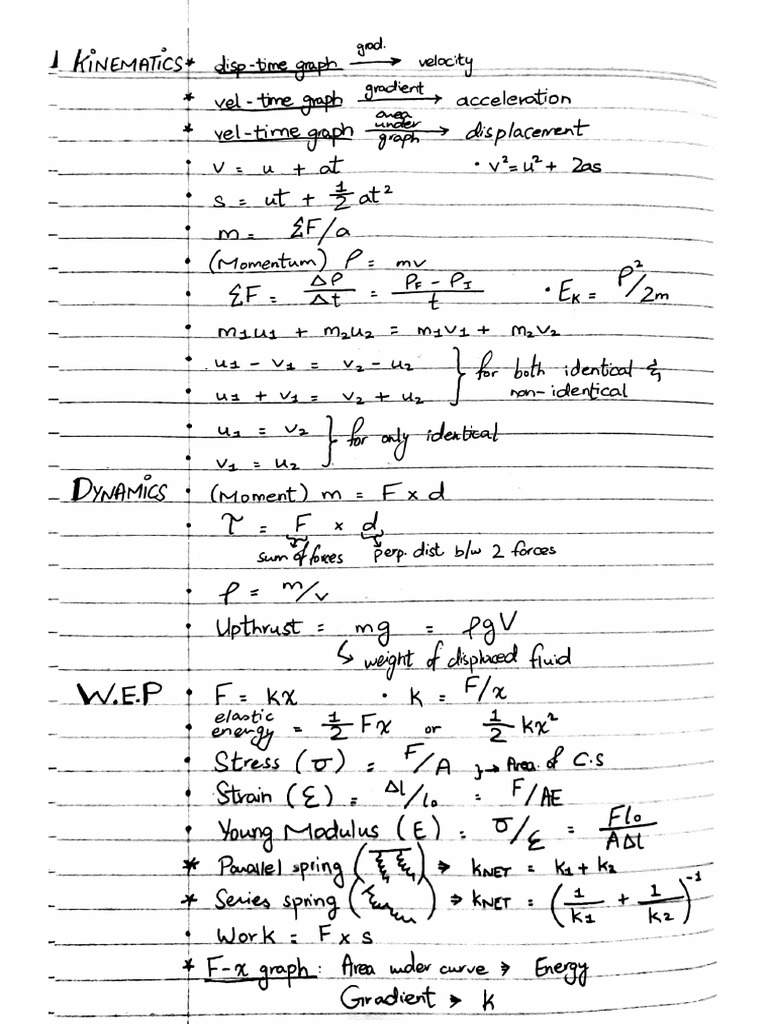 1 KINEMATICS * disp-time graph —grad.→ velocity
* vel-time graph —gradient→ acceleration
* vel-time graph —area under graph→ displacement
• v = u + at • v² = u² + 2as
• s = ut + 1/2 at²
• m = ΣF/a
• (Momentum) P = mv
• ΣF = ΔP/Δt = (P_F - P_I)/t • E_K = P²/2m
• m₁u₁ + m₂u₂ = m₁v₁ + m₂v₂
• u₁ - v₁ = v₂ - u₂ } for both identical &
• u₁ + v₁ = v₂ + u₂ non-identical
• u₁ = v₂ } for only identical
• v₁ = u₂
DYNAMICS • (Moment) m = F × d
• τ = F × d
sum of forces perp. dist b/w 2 forces
• ρ = m/v
• Upthrust = mg = ρgV
↳ weight of displaced fluid
W.E.P • F = kx • k = F/x
• elastic energy = 1/2 Fx or 1/2 kx²
• Stress (σ) = F/A }→ Area of C.S
• Strain (ε) = Δl/l₀ = F/AE
• Young Modulus (E) = σ/ε = Fl₀/AΔl
* Parallel spring ( ) → k_NET = k₁ + k₂
* Series spring ( ) → k_NET = (1/k₁ + 1/k₂)⁻¹
• Work = F × s
* F-x graph: Area under curve → Energy
Gradient → k